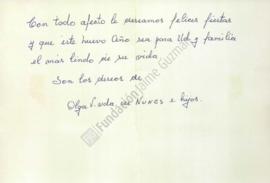 Con todo afecto le deseamos felices fiestas
y que este nuevo Año sea para Ud. y familia
el más lindo de su vida.
Son los deseos de
Olga V. vda. de NUNES e hijos.
Fundación Jaime Guzmán